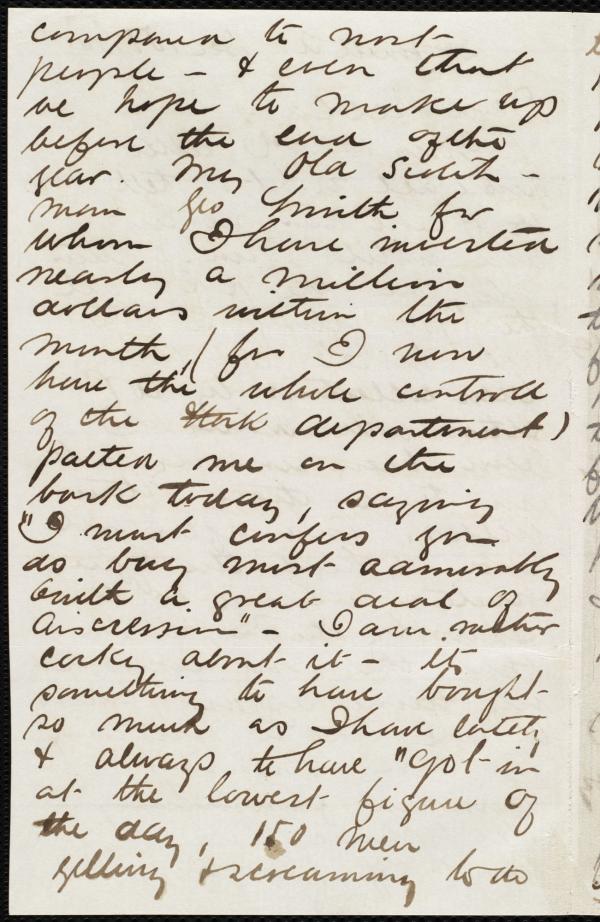 compared to most
people – & even that
we hope to make up
before the end of the
year. My Old Scotch-
man Geo Smith for
whom I have invested
nearly a million
dollars within the
month, (for I now
have the whole controll
of the Stock department)
patted me on the
back today, saying
"I must confess you
do buy most admirably
with a great deal of
discression" – I am rather
cocky about it – Its
something to have bought
so much as I have lately,
& always to have "got in"
at the lowest figure of
the day, 150 men
yelling & screaming to do